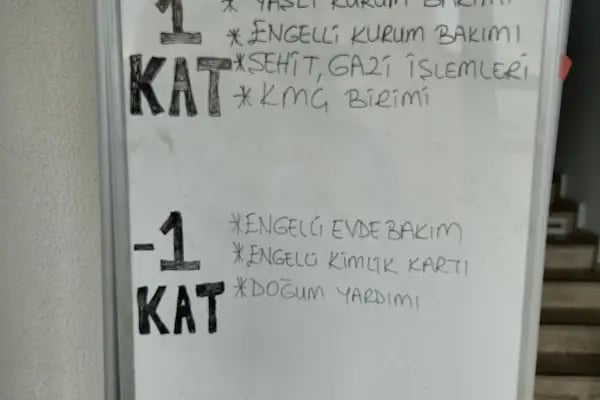 1
KAT
* YAŞLI KURUM BAKIMI
* ENGELLİ KURUM BAKIMI
* ŞEHİT, GAZİ İŞLEMLERİ
* KMÇ BİRİMİ
-1
KAT
* ENGELLİ EVDE BAKIM
* ENGELLİ KİMLİK KARTI
* DOĞUM YARDIMI